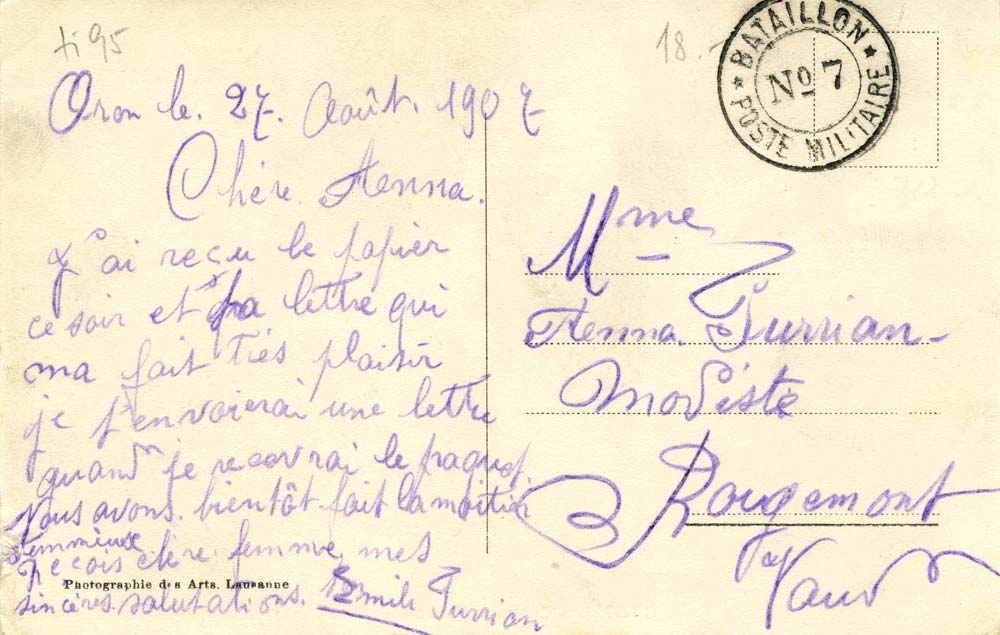 ti 95
18.-
BATAILLON
No 7
POSTE MILITAIRE
Oron le. 27. Août. 1907
Chère Henna.
J'ai reçu le papier
ce soir et ta lettre qui
ma fait Tiès plaisir
je t'envoierai une lettre
quand je recevrai le paquet
Nous avons. bientôt fait la moitié
Reçois chère femme mes
sincères salutations. Emile Turrian
Photographie des Arts. Lausanne
Mme
Henna. Turrian-
Modiste
Rougemont
Vaud